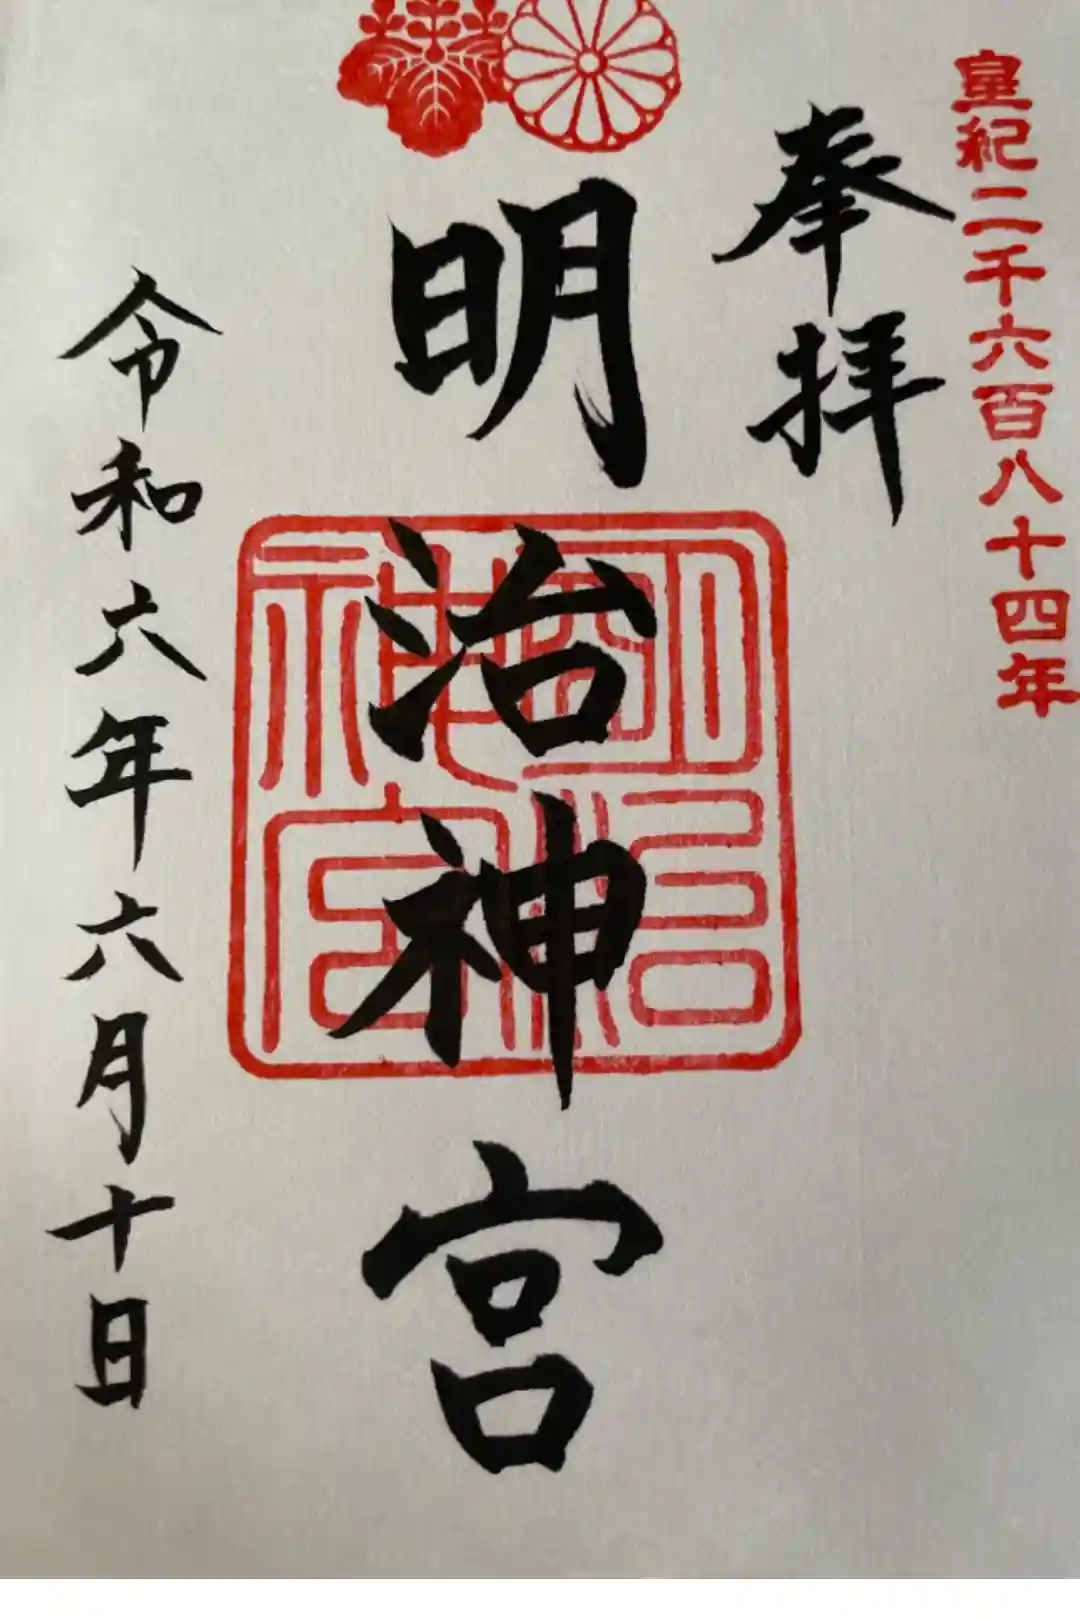 皇紀二千六百八十四年
奉拝
明治神宮
明治神宮
令和六年六月十日